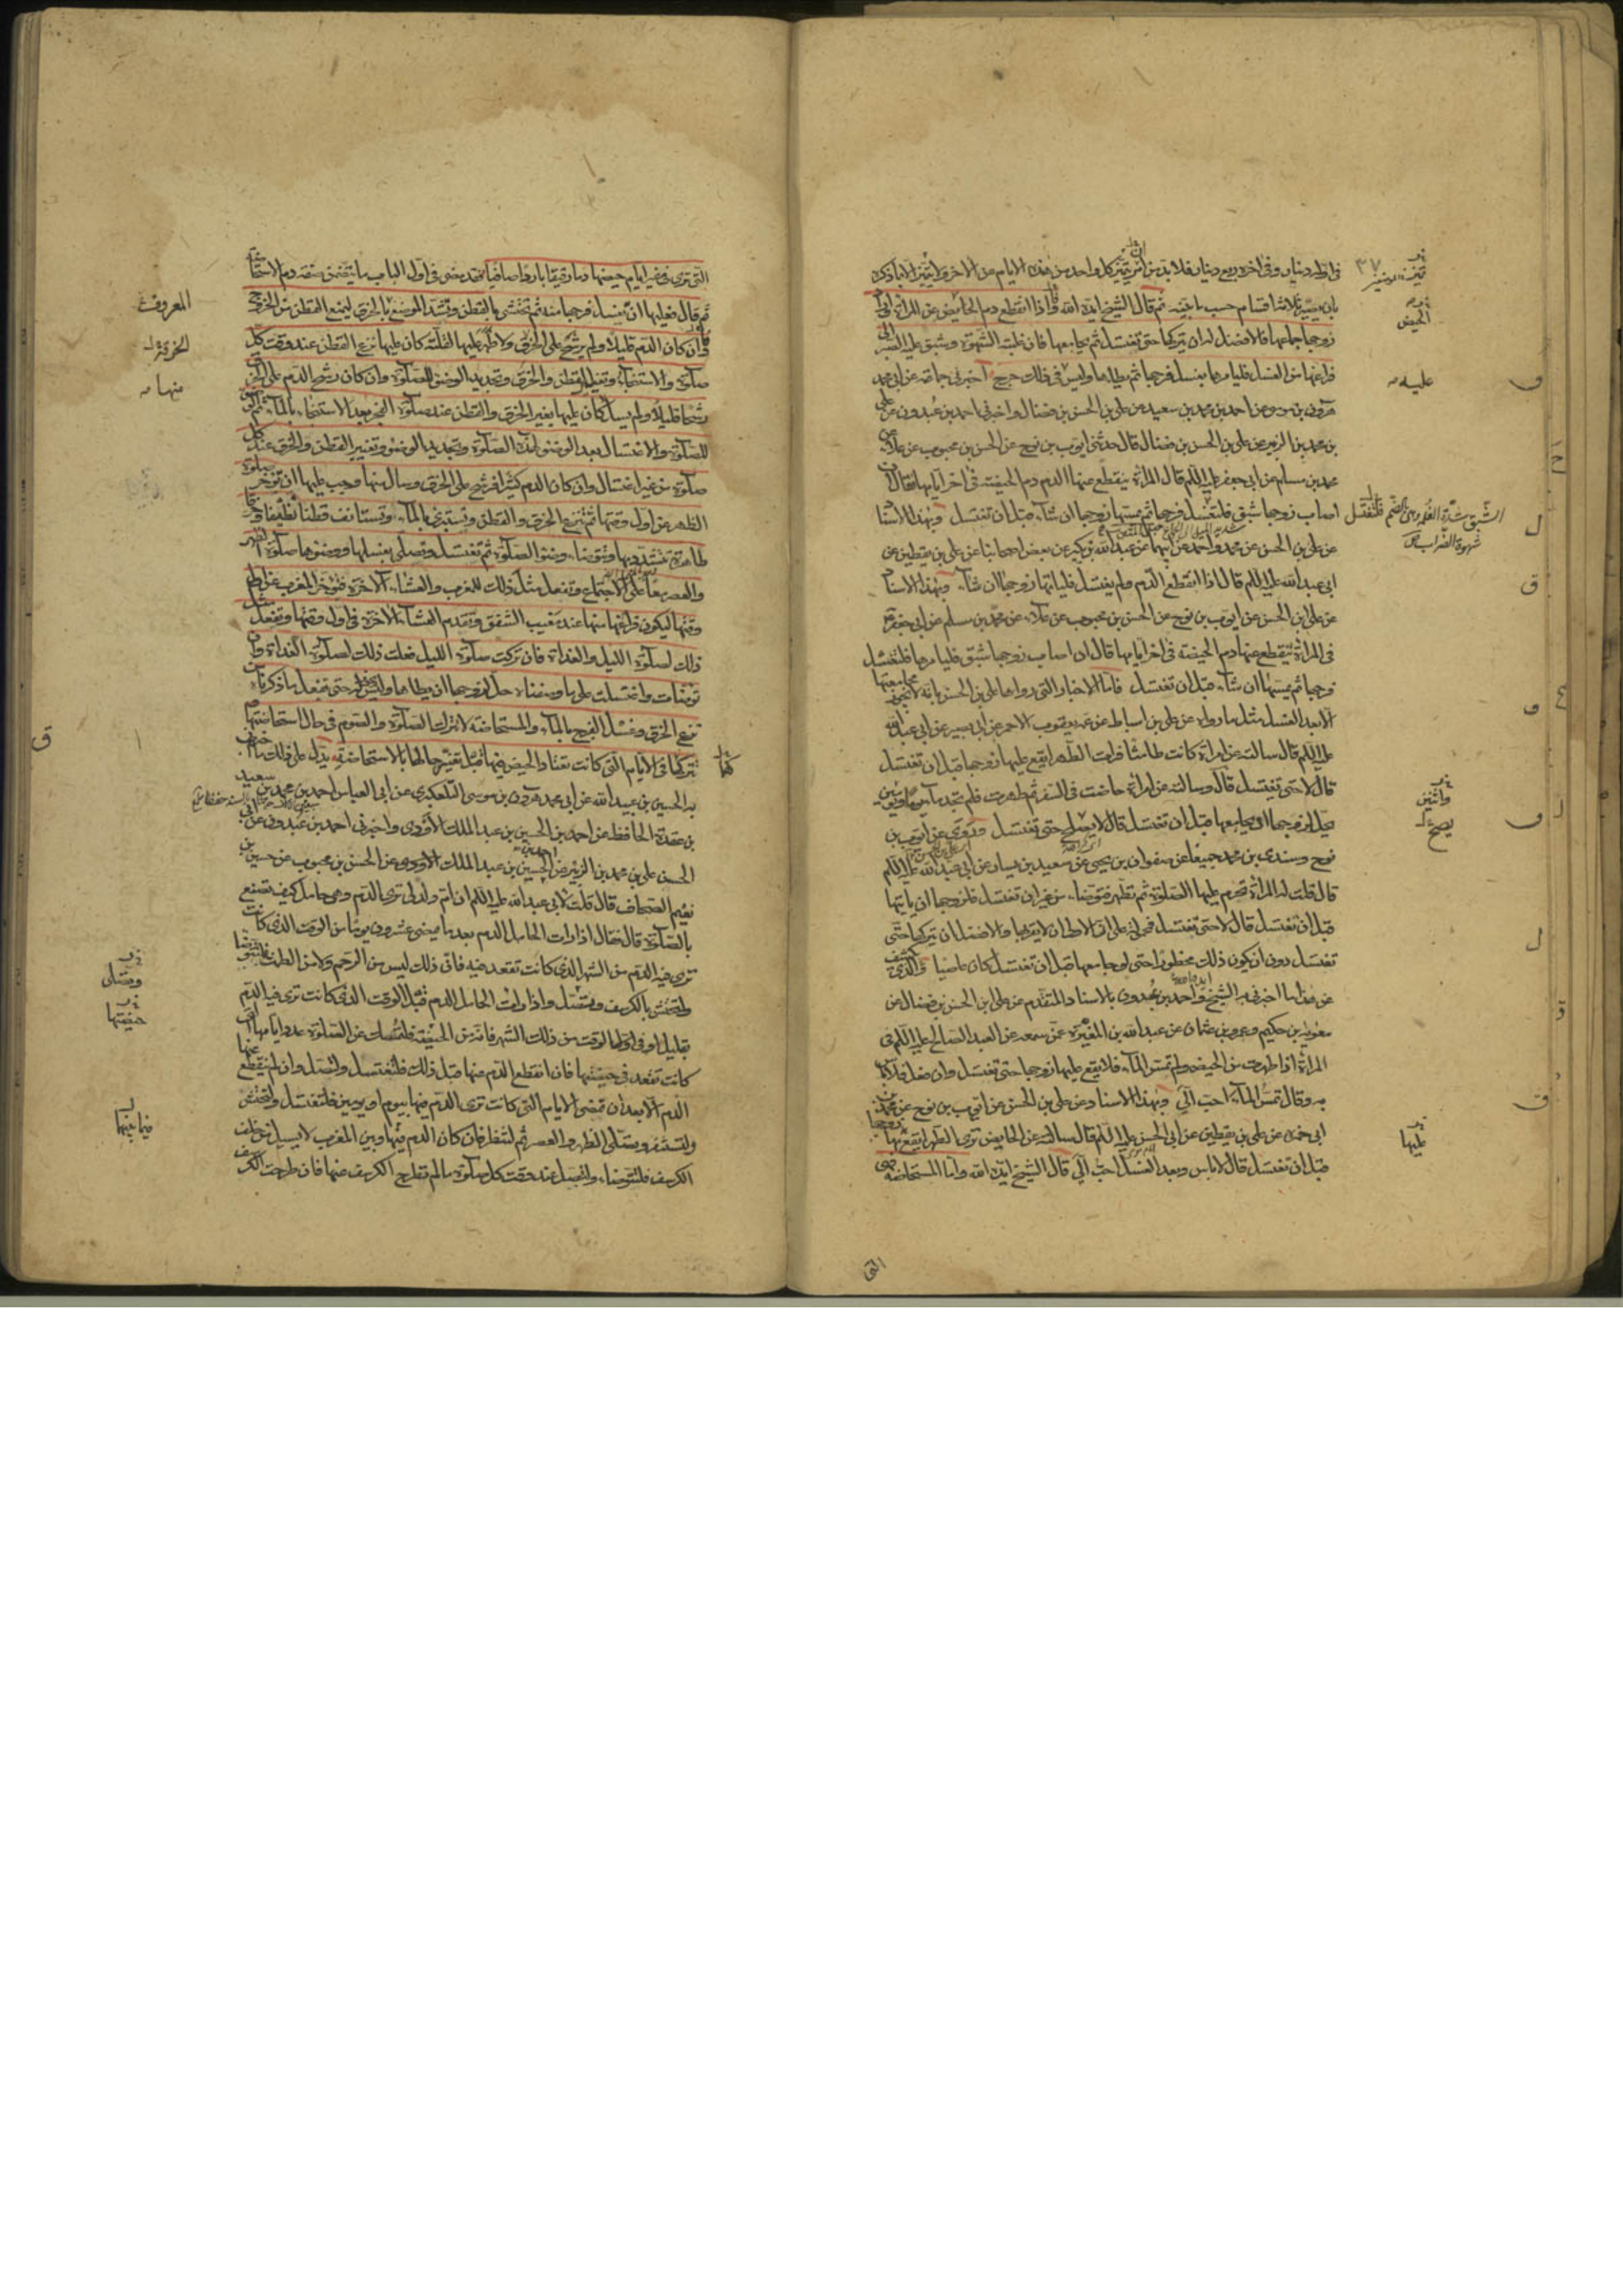 في اوله دينار وفي اخره ربع دينار فلا بد من ان يتميز كل واحد من هذه الايام من الاخر ولا يتميز الا بما ذكرناه
بان يصير ثلاثة اقسام حسب ما بيناه ثم قال الشيخ ايده الله فاذا انقطع دم الحايض عن المراة واراد
زوجها جماعها فالافضل له ان يتركها حتى تغتسل ثم يجامعها فان غلبته الشهوة وشق عليه الصبر الى
فراغها من الغسل فليامرها بغسل فرجها ثم يطاها وليس في ذلك حرج اخبرني جماعة عن ابي محمد
هرون بن موسى عن احمد بن محمد بن سعيد عن علي بن الحسن بن فضال واخبرني احمد بن عبدون عن علي
بن محمد بن الزبير عن علي بن الحسن بن فضال قال حدثني ايوب بن نوح عن الحسن بن محبوب عن علاء عن
محمد بن مسلم عن ابي جعفر عليه السلم قال المراة ينقطع عنها الدم دم الحيضة في اخر ايامها فقال ان
اصاب زوجها شبق فلتغتسل فرجها ثم يمسها زوجها ان شاء قبل ان تغتسل وبهذا الاسناد
عن علي بن الحسن عن محمد واحمد عن ابيهما عن عبد الله بن بكير عن بعض اصحابنا عن علي بن يقطين عن
ابي عبد الله عليه السلم قال اذا انقطع الدم ولم يغتسل فلياتها زوجها ان شاء وبهذا الاسناد
عن علي بن الحسن عن ايوب بن نوح عن الحسن بن محبوب عن علاء عن محمد بن مسلم عن ابي جعفر
في المراة ينقطع عنها دم الحيضة في اخر ايامها قال ان اصاب زوجها شبق فليامرها فلتغسل
فرجها ثم يمسها ان شاء قبل ان تغتسل فاما الاخبار التي رواها علي بن الحسن بانه لا يجوز مجامعتها
الا بعد الغسل مثل ما رواه عن علي بن اسباط عن عمه يعقوب الاحمر عن ابي بصير عن ابي عبد الله
عليه السلم قال سالته عن امراة كانت طامثا فرات الطهر ايقع عليها زوجها قبل ان تغتسل
قال لا حتى تغتسل قال وسالته عن امراة حاضت في السفر ثم طهرت فلم تجد ماء يوما او يومين
يحل لزوجها ان يجامعها قبل ان تغتسل قال لا يصلح حتى تغتسل وروى عن ايوب بن
نوح وسندي بن محمد جميعا عن صفوان بن يحيى عن سعيد بن يسار عن ابي عبد الله عليه السلم
قال قلت له المراة تحرم عليها الصلوة ثم تطهر فتوضا من غير ان تغتسل فلزوجها ان ياتيها
قبل ان تغتسل قال لا حتى تغتسل فمحمولة على ان الاولى ان لا يقربها والافضل ان يتركها حتى
تغتسل دون ان يكون ذلك محظورا حتى لو جامعها قبل ان تغتسل كان عاصيا والذي يكشف
عن هذا ما اخبرني به الشيخ واحمد بن عبدون بالاسناد المتقدم عن علي بن الحسن بن فضال عن
معوية بن حكيم وعمرو بن عثمان عن عبد الله بن المغيرة عمن سمعه عن العبد الصالح عليه السلم في
المراة اذا طهرت من الحيض ولم تمس الماء فلا يقع عليها زوجها حتى تغتسل وان فعل فلا باس
به وقال تمس الماء احب الي وبهذا الاسناد عن علي بن الحسن عن ايوب بن نوح عن محمد بن
ابي حمزة عن علي بن يقطين عن ابي الحسن عليه السلم قال سالته عن الحايض ترى الطهر ايقع بها زوجها
قبل ان تغتسل قال لا باس وبعد الغسل احب الي قال الشيخ ايده الله واما المستحاضة فهي
التي
الحيض
عليه
واثنين
يصح
عليها
التي ترى في غير ايام حيضها دما رقيقا باردا صافيا فقد مضى في اول الباب ما يتضمن صفة دم الاستحاضة
ثم قال فعليها ان تغسل فرجها منه ثم تحتشي بالقطن وتشد الموضع بالخرق ليمنع القطن من الخروج
وان كان الدم قليلا ولم يرشح على الخرق ولا ظهر عليها لقلته كان عليها نزع القطن عند وقت كل
صلوة والاستنجاء وتغيير القطن والخرق وتجديد الوضوء للصلوة وان كان رشح الدم على الخرق
رشحا قليلا ولم يسل كان عليها تغيير الخرق والقطن عند صلوة الفجر بعد الاستنجاء بالماء ثم الوضوء
للصلوة والاغتسال بعد الوضوء لهذه الصلوة وتجديد الوضوء وتغيير القطن والخرق عند كل
صلوة من غير اغتسال وان كان الدم كثيرا فرشح على الخرق وسال منها وجب عليها ان تؤخر صلوة
الظهر عن اول وقتها ثم تنزع الخرق والقطن وتستبرئ بالماء وتستانف قطنا نظيفا وخرقا
طاهرة تتشدد بها وتتوضا وضوء الصلوة ثم تغتسل وتصلي بغسلها ووضوءها صلوة الظهر
والعصر معا على الاجتماع وتفعل مثل ذلك للمغرب والعشاء الاخرة فتؤخر المغرب عن اول
وقتها ليكون فراغها منها عند مغيب الشفق وتقدم العشاء الاخرة في اول وقتها وتفعل مثل
ذلك لصلوة الليل والغداة فان تركت صلوة الليل فعلت ذلك لصلوة الغداة وان
توضات واغتسلت على ما وصفناه حل لزوجها ان يطاها وليس له حتى تفعل ما ذكرناه من
نزع الخرق وغسل الفرج بالماء والمستحاضة لا تترك الصلوة والصوم في حال استحاضتها
وتتركهما في الايام التي كانت تعتاد الحيض فيها قبل تغير حالها بالاستحاضة يدل على ذلك ما اخبرني
به الحسين بن عبيد الله عن ابي محمد هرون بن موسى التلعكبري عن ابي العباس احمد بن محمد بن سعيد
بن عقدة الحافظ عن احمد بن الحسين بن عبد الملك الاودي واخبرني احمد بن عبدون عن ابي
الحسن علي بن محمد بن الزبير عن احمد بن الحسين بن عبد الملك الاودي عن الحسن بن محبوب عن حسين بن
نعيم الصحاف قال قلت لابي عبد الله عليه السلم ان ام ولد لي ترى الدم وهي حامل كيف تصنع
بالصلوة قال فقال اذا رات الحامل الدم بعد ما يمضي عشرون يوما من الوقت الذي كانت
ترى فيه الدم من الشهر الذي كانت تقعد فيه فان ذلك ليس من الرحم ولا من الطمث فلتتوضا
ولتحتش بالكرسف وتصل واذا رات الحامل الدم قبل الوقت الذي كانت ترى فيه الدم
بقليل او في اول الوقت من ذلك الشهر فانه من الحيضة فلتمسك عن الصلوة عدد ايامها التي
كانت تقعد في حيضها فان انقطع الدم عنها قبل ذلك فلتغتسل ولتصل وان لم ينقطع عنها
الدم الا بعد ان تمضي الايام التي كانت ترى الدم فيها بيوم او يومين فلتغتسل ولتحتش
ولتستثفر وتصلي الظهر والعصر ثم لتنظر فان كان الدم فيما بينها وبين المغرب لا يسيل من خلف
الكرسف فلتتوضا ولتصل عند وقت كل صلوة ما لم تطرح الكرسف عنها فان طرحت الكرسف
المعروف
الخرقة
منها
وتصلي
حيضتها
فيما بينها